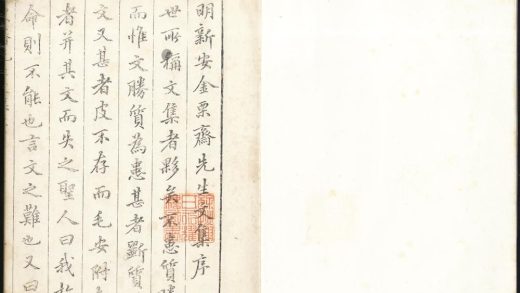 明新安金栗齋先生文集序
世所稱文集者夥矣不患質
而惟文勝質為患甚者斲質
文又甚者皮不存而毛安附
者并其文而失之聖人曰我
命則不能也言文之難也又曰